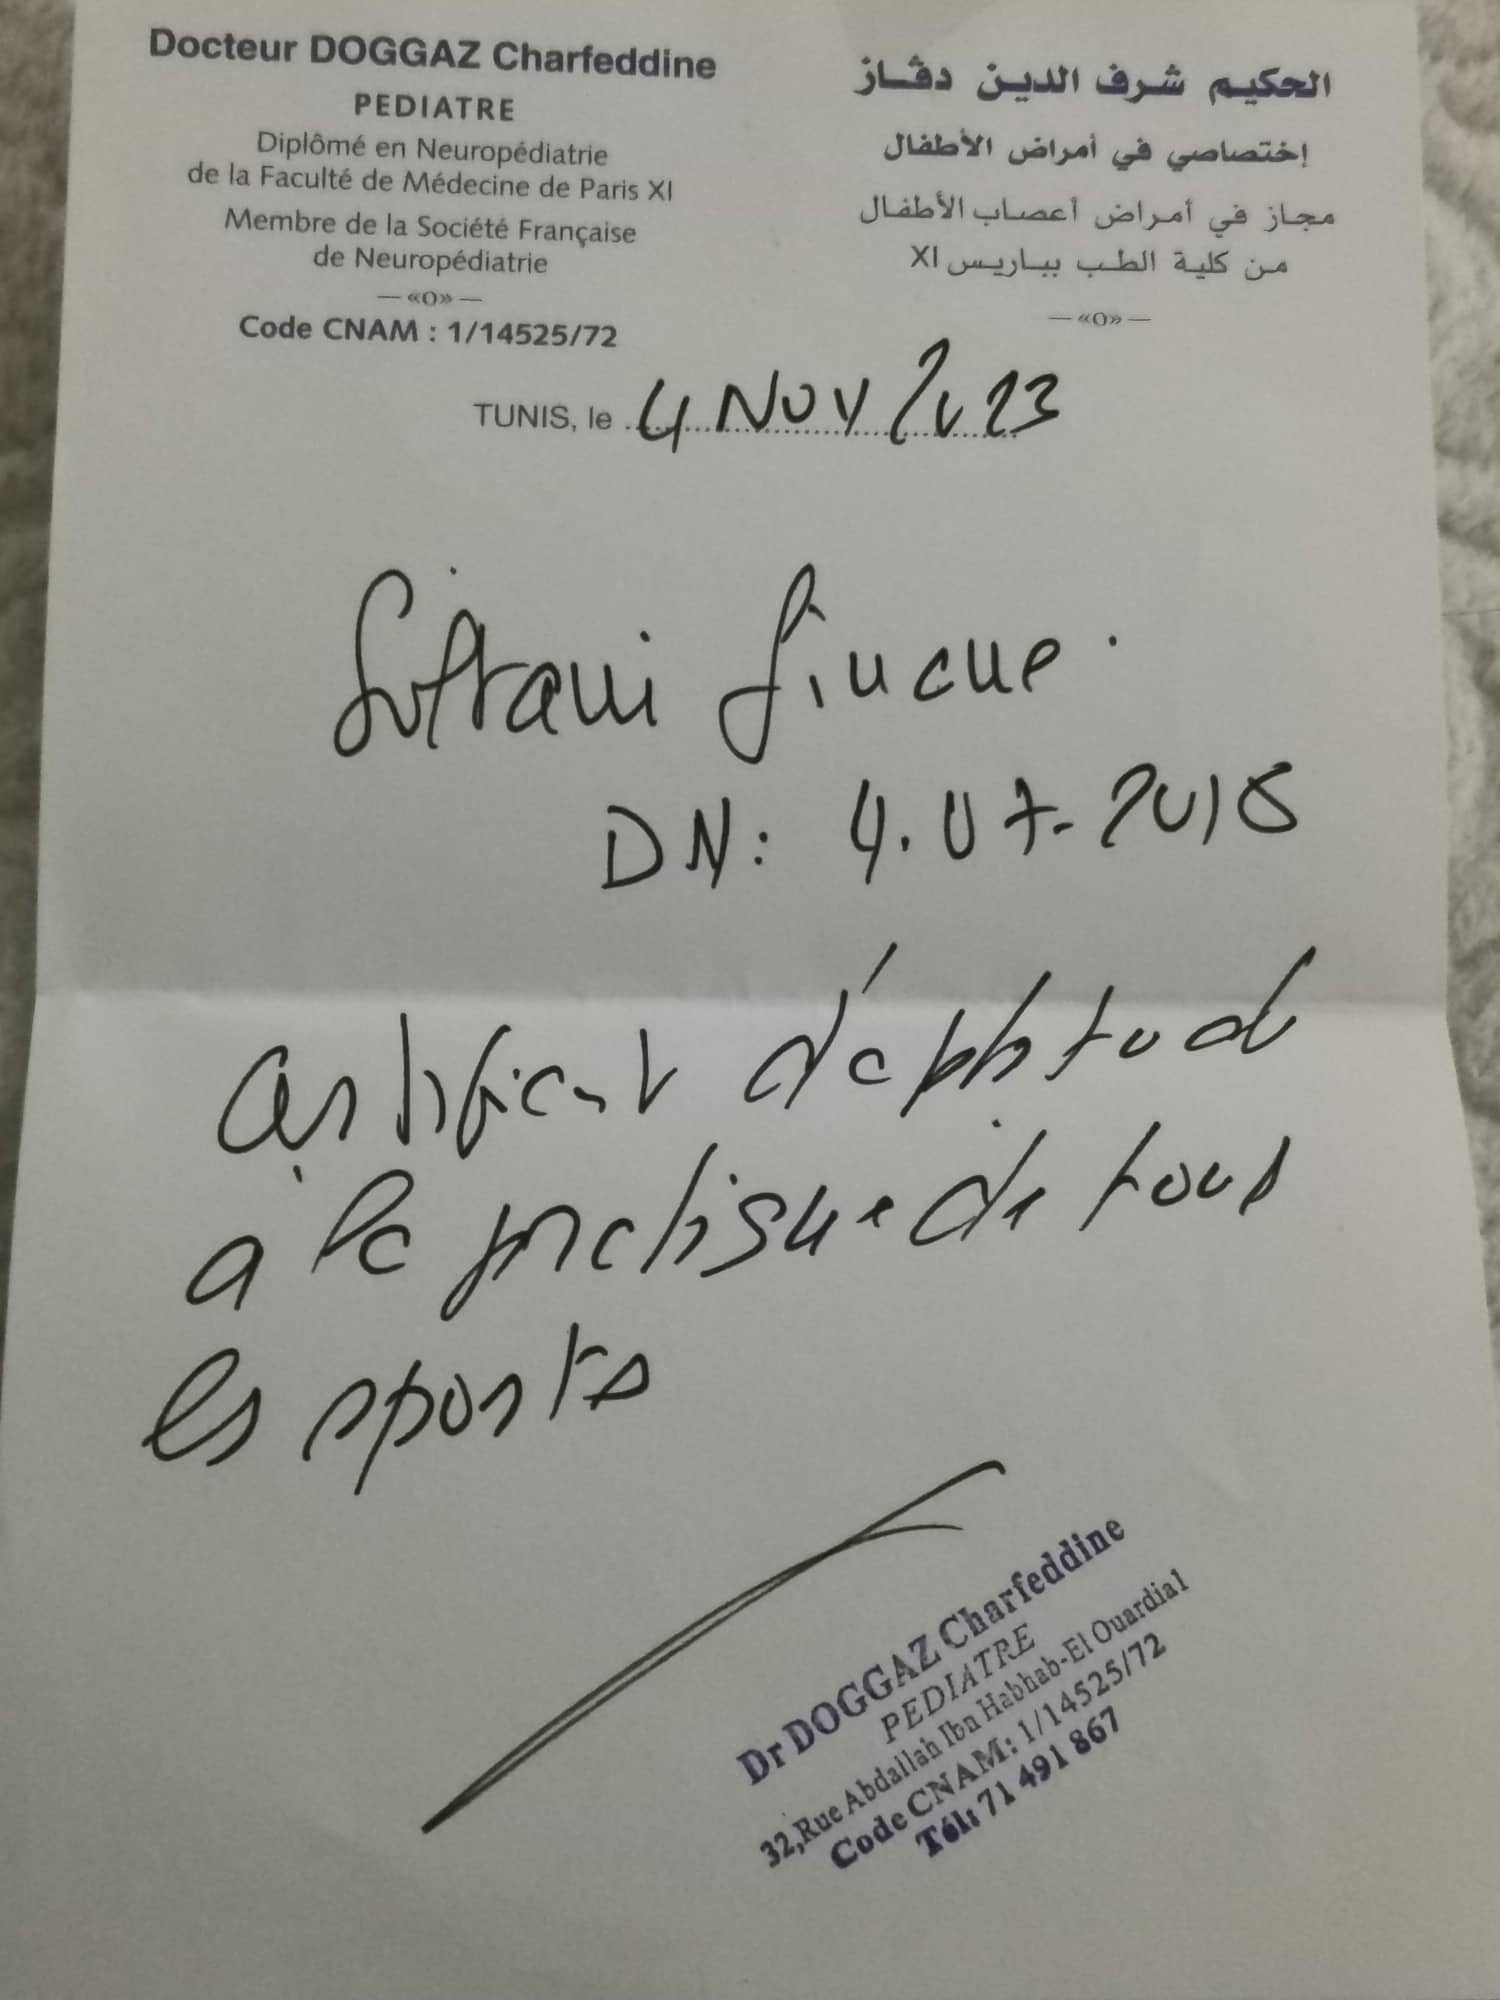 Docteur DOGGAZ Charfeddine
PEDIATRE
Diplômé en Neuropédiatrie
de la Faculté de Médecine de Paris XI
Membre de la Société Française
de Neuropédiatrie
— «O» —
Code CNAM : 1/14525/72
الحكيم شرف الدين دڤاز
إختصاصي في أمراض الأطفال
مجاز في أمراض أعصاب الأطفال
من كلية الطب بباريس XI
— «O» —
TUNIS, le 4 NOV 2023
DN: 4.07.2018
certificat d'aptitude
à la pratique de tous
les sports
Dr DOGGAZ Charfeddine
PEDIATRE
32,Rue Abdallah Ibn Habhab-El Ouardia1
Code CNAM: 1/14525/72
Tél: 71 491 867